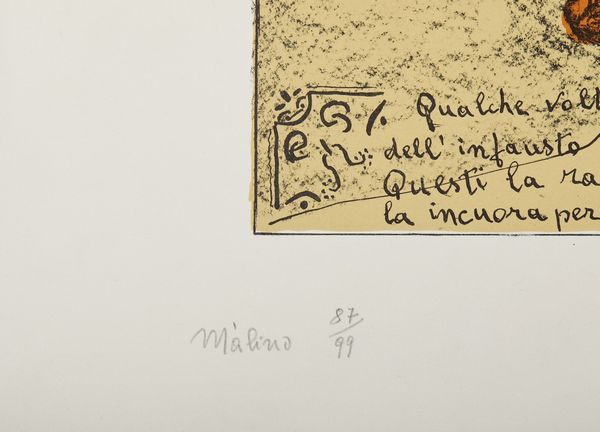 Qualche volt
dell' infausto
Questi la ra
la incuora per
Màlino 87/99